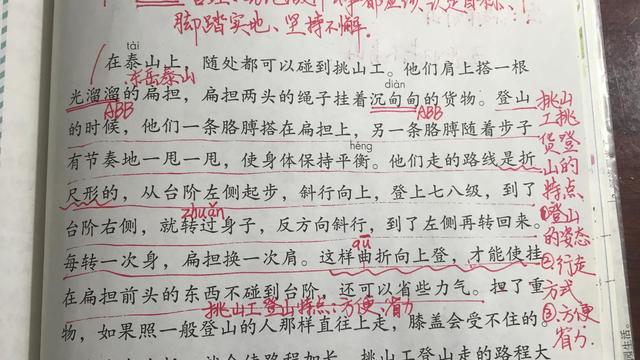 脚踏实地、坚持不懈.
tài
在泰山上，随处都可以碰到挑山工。他们肩上搭一根
东岳泰山
diàn
光溜溜的扁担，扁担两头的绳子挂着沉甸甸的货物。登山
ABB
ABB
的时候，他们一条胳膊搭在扁担上，另一条胳膊随着步子
héng
有节奏地一甩一甩，使身体保持平衡。他们走的路线是折
尺形的，从台阶左侧起步，斜行向上，登上七八级，到了
zhuǎn
台阶右侧，就转过身子，反方向斜行，到了左侧再转回来。
qū
每转一次身，扁担换一次肩。这样曲折向上登，才能使挂
在扁担前头的东西不碰到台阶，还可以省些力气。担了重
挑山工登山特点：方便、省力
物，如果照一般登山的人那样直往上走，膝盖会受不住的。
路程加长。挑山工登山走的路程大
挑山
工挑
货登
山的
特点
①登山
的姿态
②行走
方式
③方便
省力